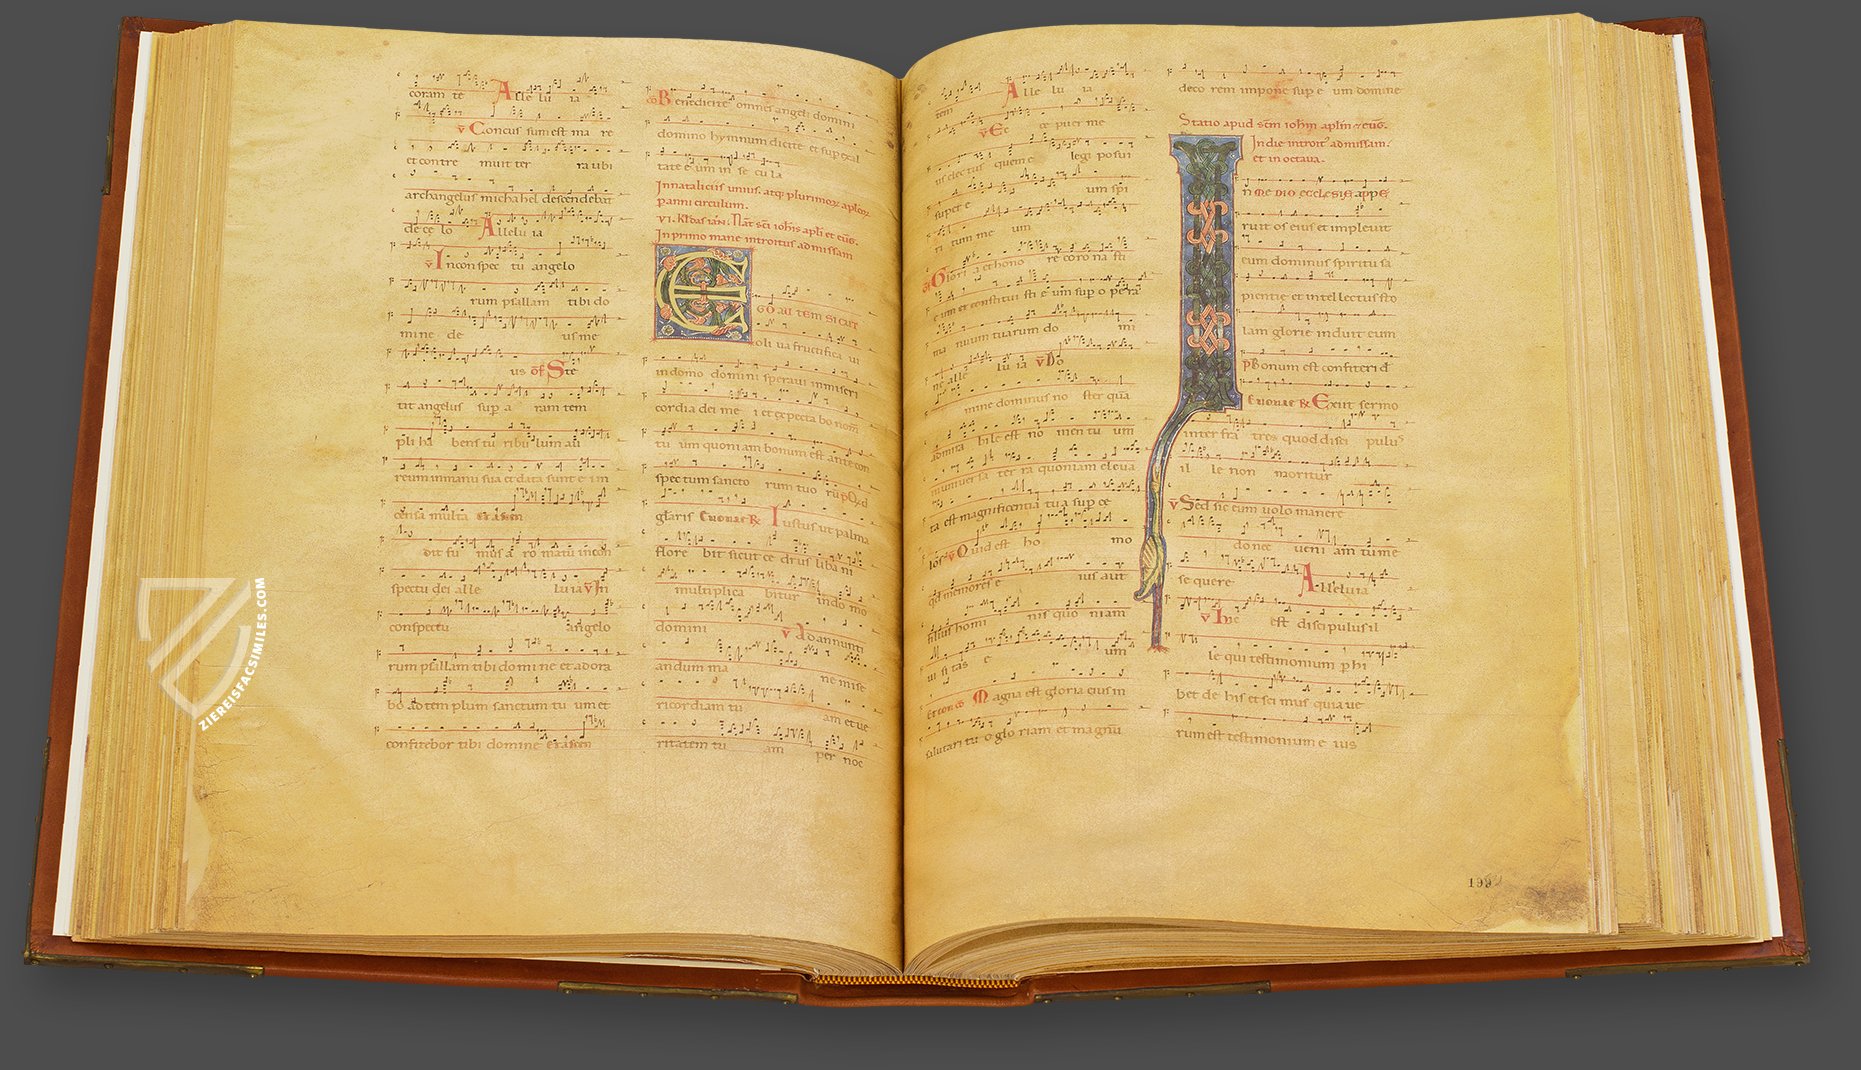 coram te Alle lu ia
℣ Concus sum est ma re
et contre muit ter ra ubi
archangelus micha hel descendebat
de ce lo Allelu ia
℣ Inconspec tu angelo
rum psallam tibi do
mine de us me
us off Ste
tit angelus sup a ram tem
pli ha bens tu ribu lum au
reum in manu sua et data sunt e i in
censa multa et ascen
dit fu mus a ro matū in con
spectu dei alle lu ia ℣ In
conspectu angelo
rum psallam tibi domi ne et adora
bo ad tem plum sanctum tu um et
confitebor tibi domine et ascen
co Benedicite omnes angeli domini
domino hymnum dicite et sup exal
tate e um in se cu la
In nataliciis unius. atq; plurimoꝝ aploꝝ
panni circulum.
VI. Kłdas ian. Nat sci iohis apli et eug.
In primo mane introitus ad missam
EGO AU TEM SICUT
oli ua fructifica ui
in domo domini speraui in miseri
cordia dei me i et expecta bo nom
tu um quoniam bonum est ante con
spec tum sancto rum tuo rū ps Qd
glaris Euouae R Iustus ut palma
flore bit sicut ce drus liba ni
multiplica bitur in do mo
domini ℣ Ad annunti
andum ma ne mise
ricordiam tu am et ue
ritatem tu am per noc
tem Alle lu ia
℣ Ec ce puer me
us elec tus quem e legi posui
super e um spi
ri tum me um
Glori a et hono re coro na sti
e um et constitui sti e um sup o pe ra
ma nuum tuarum do mi
ne alle lu ia ℣ Do
mine dominus no ster qua
admira bile est no men tu um
in uniuersa ter ra quoniam eleua
ta est magnificentia tu a sup ce
los ℣ Quid est ho mo
qd memor es e ius aut
filius homi nis quo niam
ui si tas e um
Et con co Magna est gloria eius in
salutari tu o glo riam et magnū
deco rem impone sup e um domine
Statio apud scm iohm aplm et eug.
In die introit' ad missam.
et in octava.
IN MEDIO ECCLESIE APPE
ruit os eius et impleuit
eum dominus spiritu sa
pientie et intellectus sto
lam glorie induit eum
ps Bonum est confiteri d
Euouae R Exiit sermo
inter fra tres quod disci pulus
il le non moritur
℣ Sed sic eum uolo manere
donec ueni am tu me
se quere Alleluia
℣ Hic est discipulus il
le qui testimonium phi
bet de his et sci mus quia ue
rum est testimonium e ius
199
ZIEREISFACSIMILES.COM